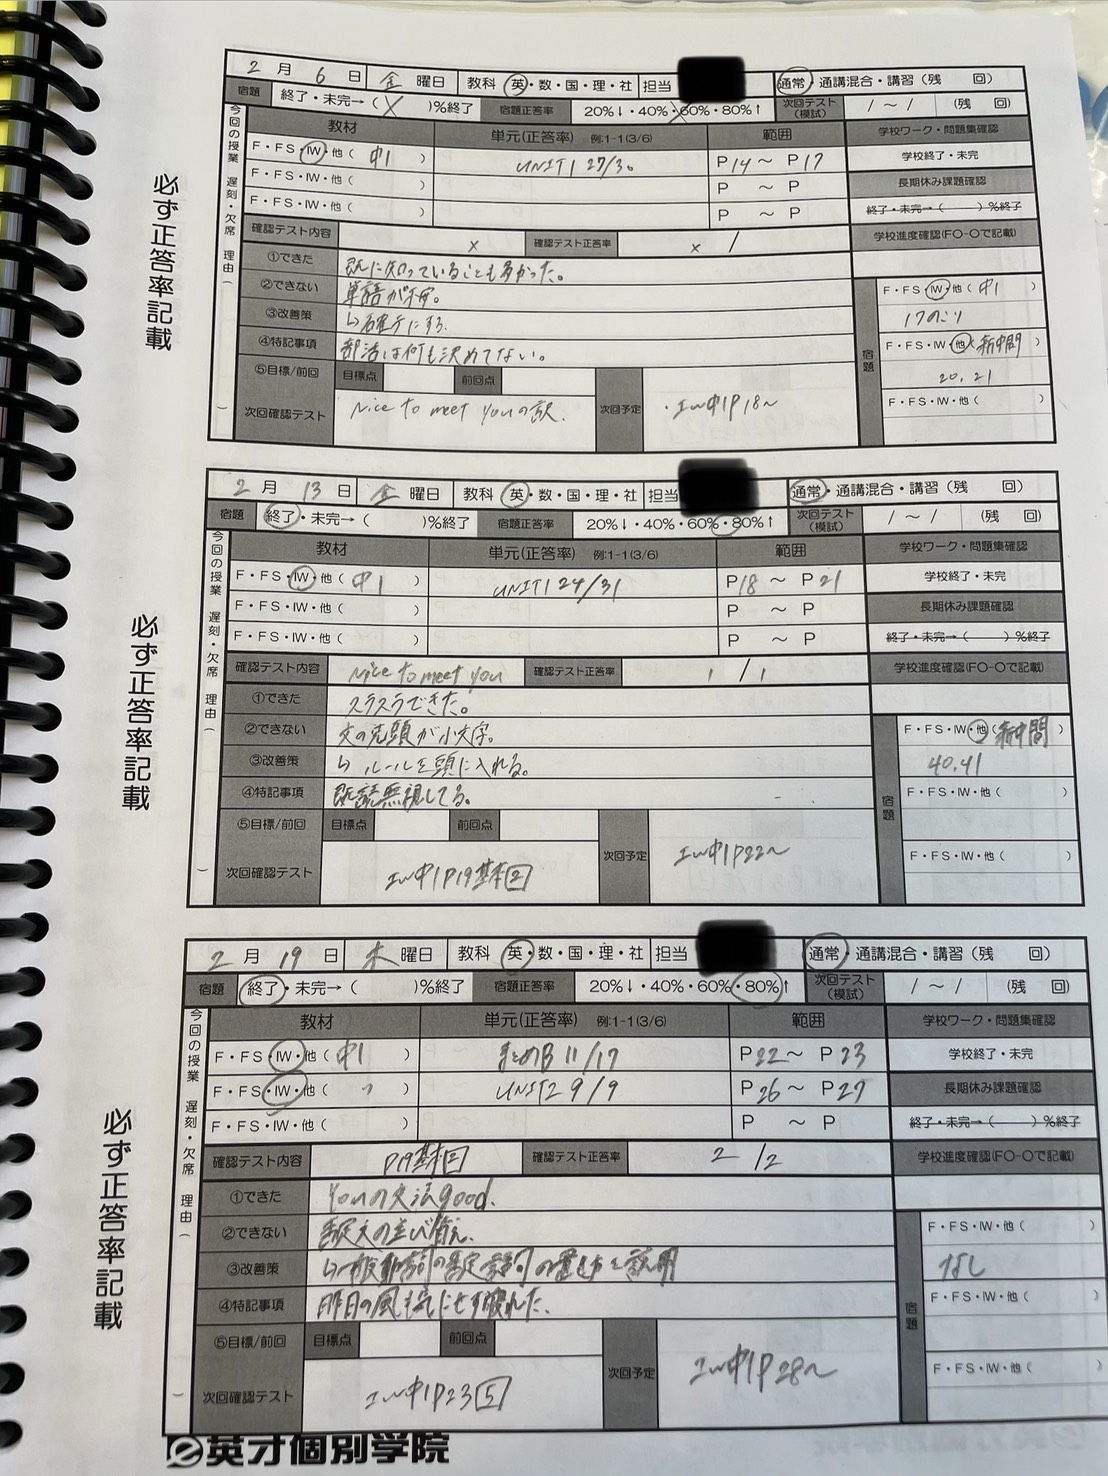 2月 6日 金曜日 教科 英・数・国・理・社 担当 通常・通講混合・講習(残 回)
宿題 終了・未完→( X )%終了 宿題正答率 20%↓・40%・60%・80%↑ 次回テスト(模試) / ~ / (残 回)
今回の授業 遅刻・欠席 理由( )
教材 単元(正答率) 例:1-1(3/6) 範囲 学校ワーク・問題集確認
F・FS・IW・他( 中1 ) UNIT1 27/30 P14 ~ P17 学校終了・未完
F・FS・IW・他( ) P ~ P 長期休み課題確認
F・FS・IW・他( ) P ~ P 終了・未完→( )%終了
確認テスト内容 x 確認テスト正答率 x / 学校進度確認(FO-Oで記載)
①できた 既に知っていることも多かった。
②できない 単語が不安。
③改善策 ↳確テにする
④特記事項 部活は何も決めてない。
⑤目標/前回 目標点 前回点
次回確認テスト Nice to meet youの訳. 次回予定 ・IW中1P18~
宿題
F・FS・IW・他( 中1 )
17のこり
F・FS・IW・他( 新中間 )
20,21
F・FS・IW・他( )
必ず正答率記載
2月 13日 金曜日 教科 英・数・国・理・社 担当 通常・通講混合・講習(残 回)
宿題 終了・未完→( )%終了 宿題正答率 20%↓・40%・60%・80%↑ 次回テスト(模試) / ~ / (残 回)
今回の授業 遅刻・欠席 理由( )
教材 単元(正答率) 例:1-1(3/6) 範囲 学校ワーク・問題集確認
F・FS・IW・他( 中1 ) UNIT1 24/31 P18 ~ P21 学校終了・未完
F・FS・IW・他( ) P ~ P 長期休み課題確認
F・FS・IW・他( ) P ~ P 終了・未完→( )%終了
確認テスト内容 Nice to meet you 確認テスト正答率 1 / 1 学校進度確認(FO-Oで記載)
①できた スラスラできた。
②できない 文の先頭が小文字。
③改善策 ↳ ルールを頭に入れる。
④特記事項 既読無視してる。
⑤目標/前回 目標点 前回点
次回確認テスト IW中1P19基本2 次回予定 IW中1P22~
宿題
F・FS・IW・他( 新中間 )
40,41
F・FS・IW・他( )
F・FS・IW・他( )
必ず正答率記載
2月 19日 木曜日 教科 英・数・国・理・社 担当 通常・通講混合・講習(残 回)
宿題 終了・未完→( )%終了 宿題正答率 20%↓・40%・60%・80%↑ 次回テスト(模試) / ~ / (残 回)
今回の授業 遅刻・欠席 理由( )
教材 単元(正答率) 例:1-1(3/6) 範囲 学校ワーク・問題集確認
F・FS・IW・他( 中1 ) まとめB 11/17 P22 ~ P23 学校終了・未完
F・FS・IW・他( 〃 ) UNIT2 9/9 P26 ~ P27 長期休み課題確認
F・FS・IW・他( ) P ~ P 終了・未完→( )%終了
確認テスト内容 P19基本2 確認テスト正答率 2 / 2 学校進度確認(FO-Oで記載)
①できた Youの文法good.
②できない 否定文の並び替え.
③改善策 ↳一般動詞の否定 の置き方を説明
④特記事項 昨日の風 気にせず
⑤目標/前回 目標点 前回点
次回確認テスト IW中1P23 5 次回予定 IW中1P28~
宿題
F・FS・IW・他( )
なし
F・FS・IW・他( )
F・FS・IW・他( )
必ず正答率記載
英才個別学院